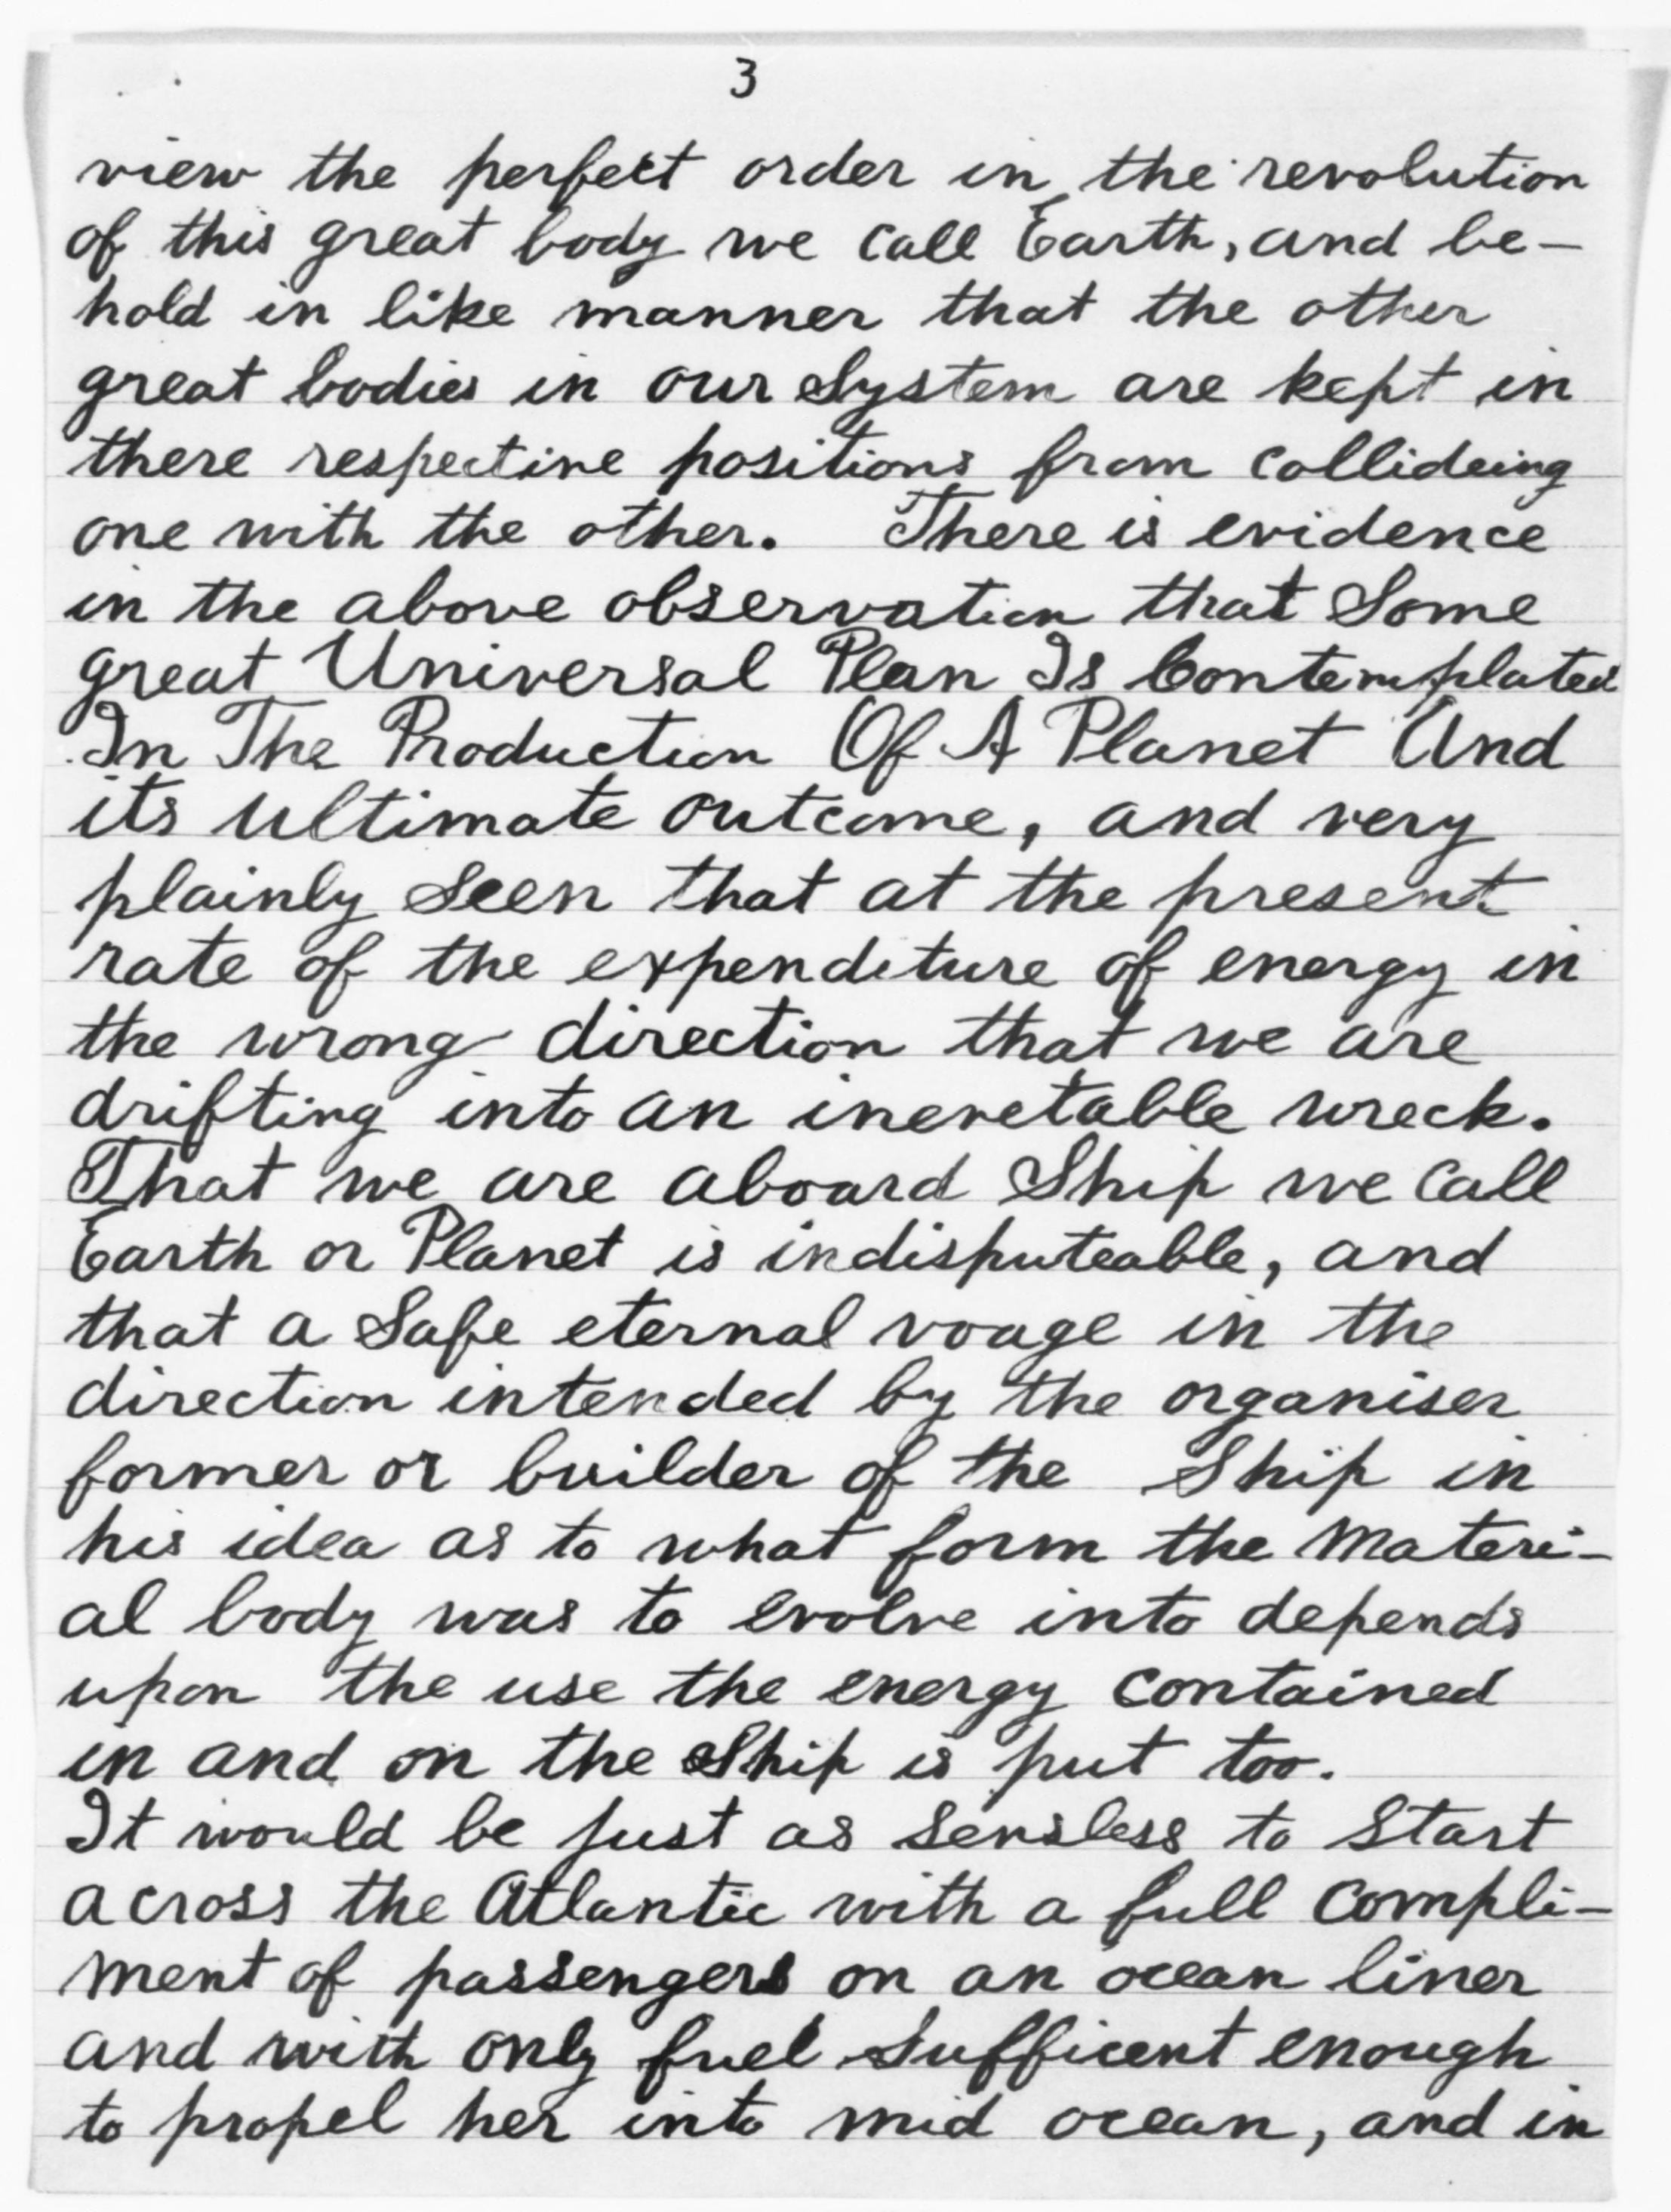 3
view the perfect order in the revolution
of this great body we call Earth, and be-
hold in like manner that the other
great bodies in our System are kept in
there respective positions from collideing
one with the other. There is evidence
in the above observation that Some
great Universal Plan Is Contemplated
In The Production Of A Planet And
its ultimate outcome, and very
plainly Seen that at the present
rate of the expenditure of energy in
the wrong direction that we are
drifting into an inevetable wreck.
That we are aboard Ship we call
Earth or Planet is indisputeable, and
that a Safe eternal voage in the
direction intended by the organiser
former or builder of the Ship in
his idea as to what form the Materi-
al body was to evolve into depends
upon the use the energy contained
in and on the Ship is put too.
It would be just as Sensless to Start
across the Atlantic with a full Compli-
ment of passengers on an ocean liner
and with only fuel Sufficent enough
to propel her into mid ocean, and in